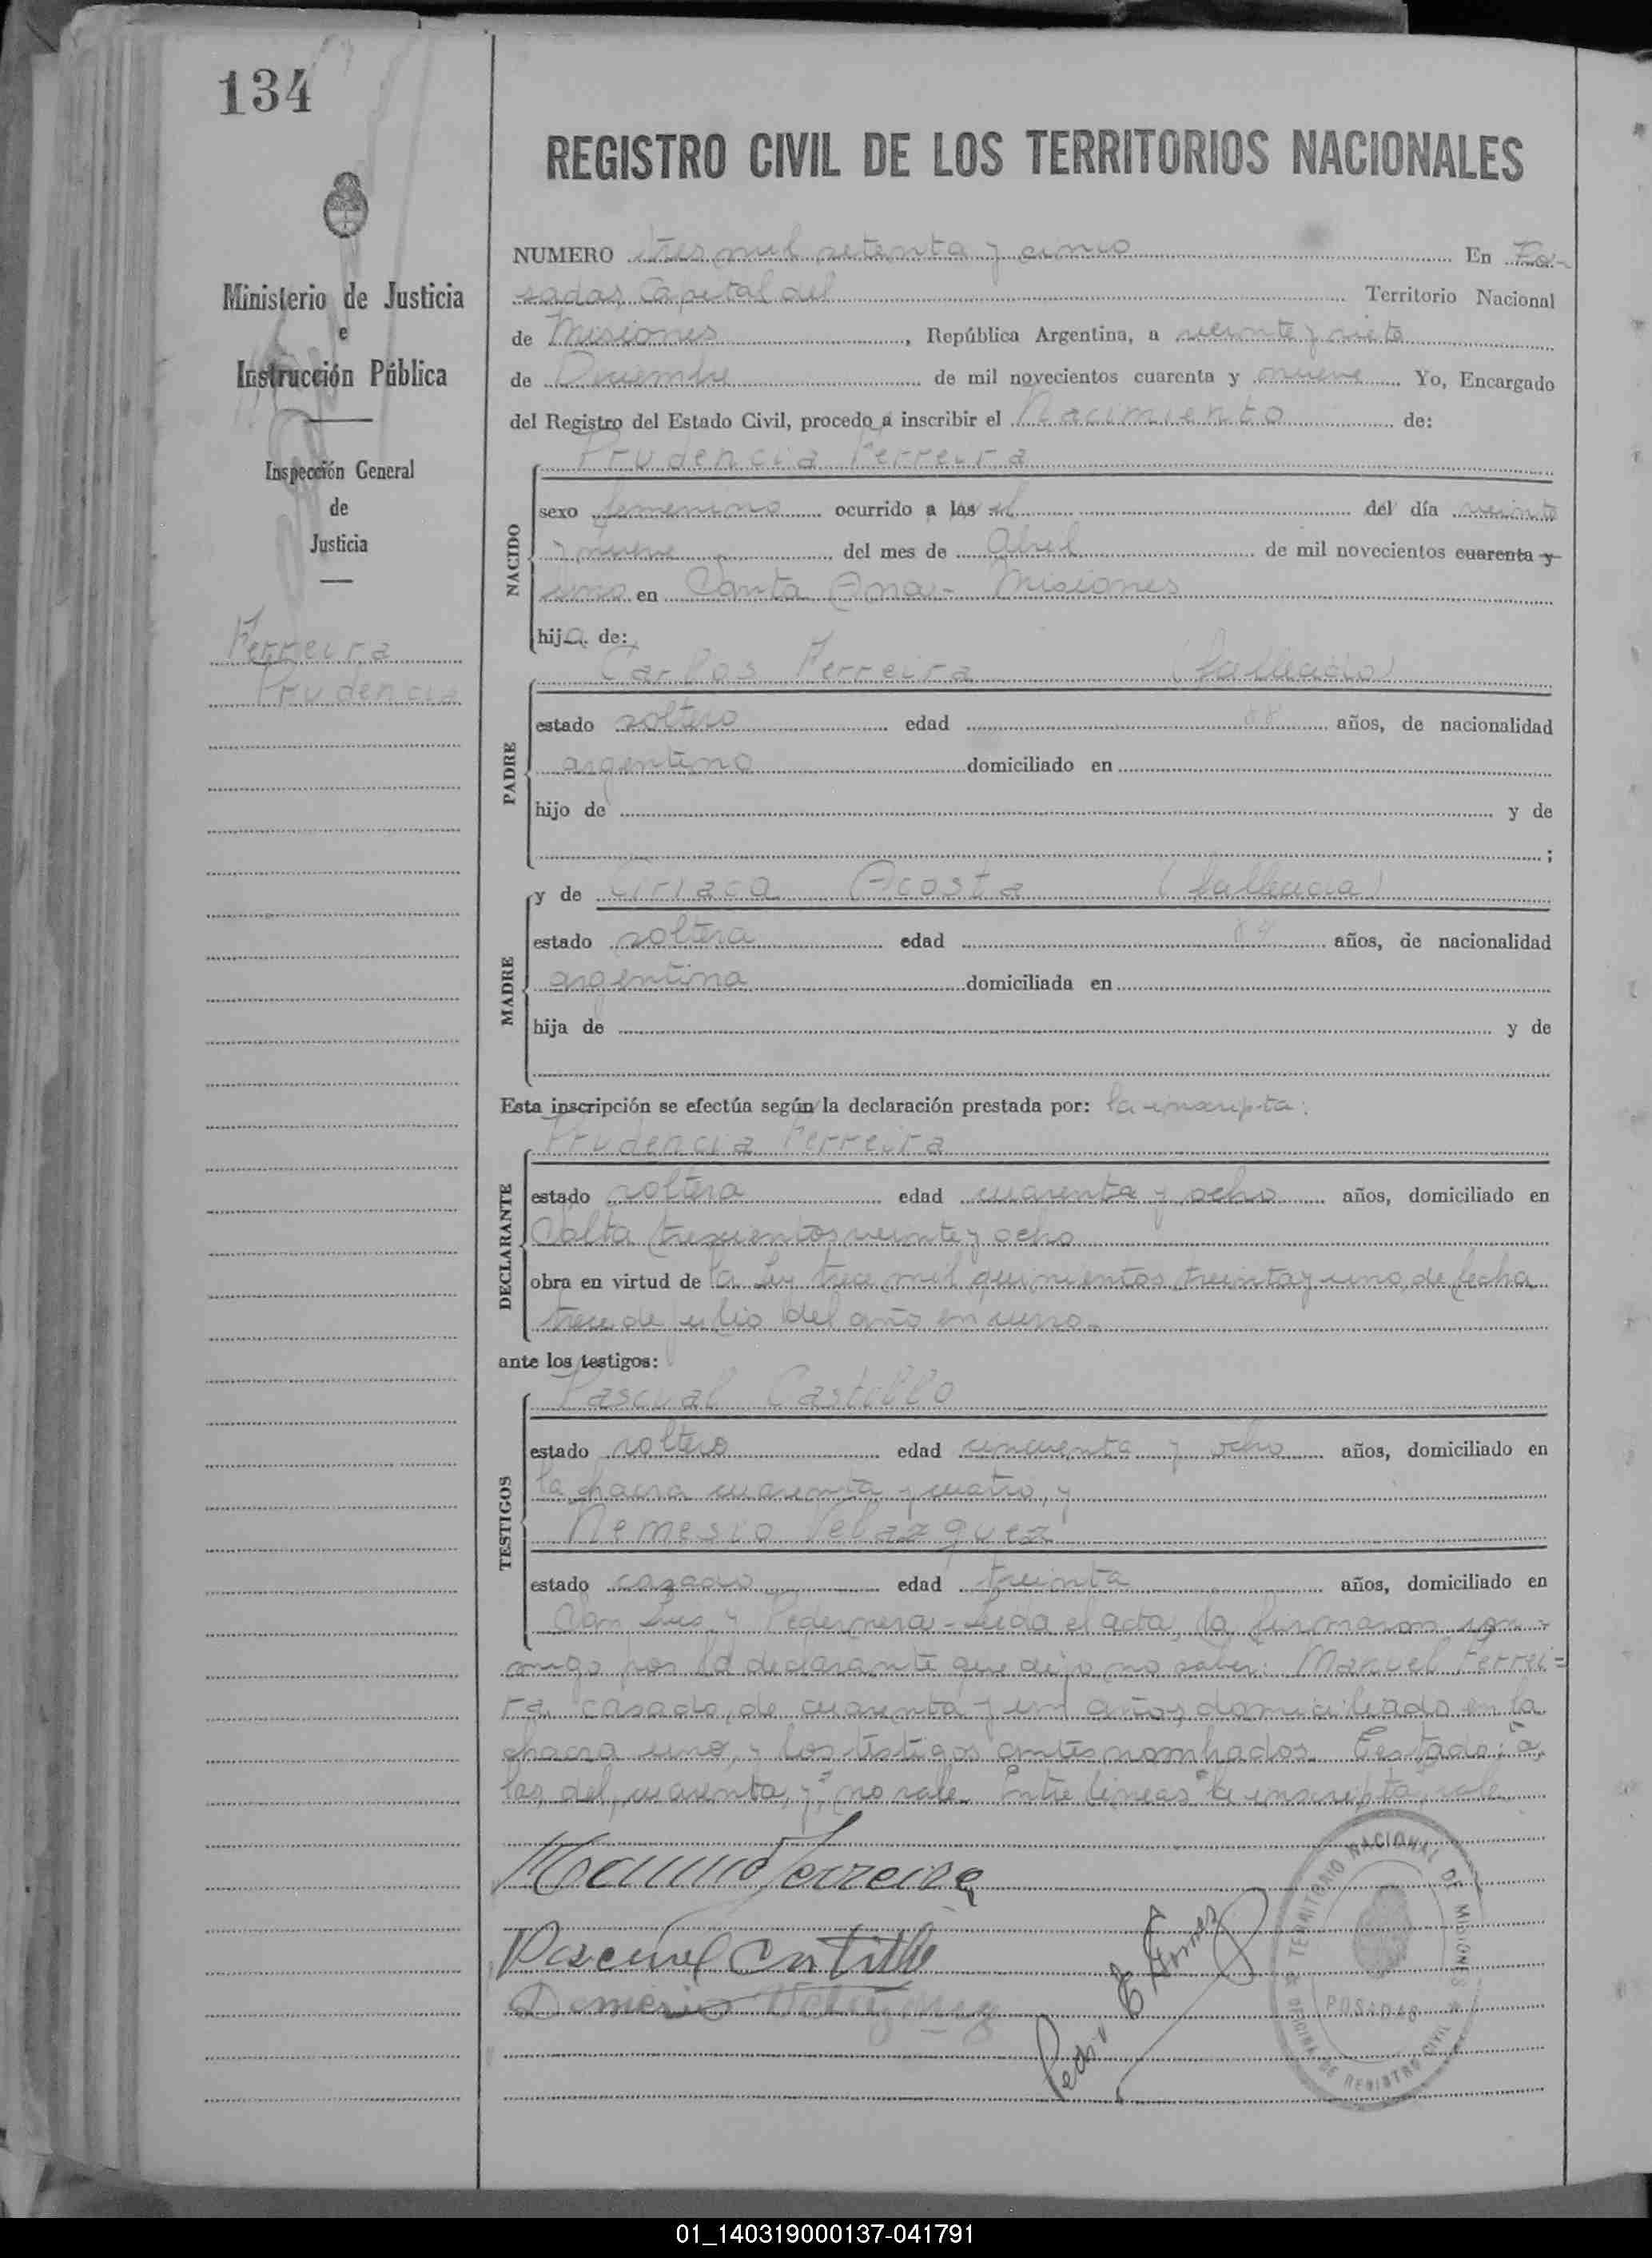 134
REGISTRO CIVIL DE LOS TERRITORIOS NACIONALES
Ministerio de Justicia
e
Instrucción Pública
Inspección General
de
Justicia
Ferreira
Prudencia
NUMERO tres mil setenta y cinco En Po-
sadas, Capital del Territorio Nacional
de Misiones, República Argentina, a veinte y siete
de Diciembre de mil novecientos cuarenta y nueve Yo, Encargado
del Registro del Estado Civil, procedo a inscribir el Nacimiento de:
NACIDO
Prudencia Ferreira
sexo femenino ocurrido a las el del día veinte
y nueve del mes de Abril de mil novecientos cuarenta y
uno en Santa Ana - Misiones
hija de:
PADRE
Carlos Ferreira (fallecido)
estado soltero edad años, de nacionalidad
argentino domiciliado en
hijo de y de
;
MADRE
y de Ciriaca Acosta (fallecida)
estado soltera edad años, de nacionalidad
argentina domiciliada en
hija de y de
Esta inscripción se efectúa según la declaración prestada por: la inscripta:
DECLARANTE
Prudencia Ferreira
estado soltera edad cuarenta y ocho años, domiciliado en
Salta trescientos veinte y ocho
obra en virtud de la Ley trece mil quinientos treinta y uno, de fecha
trece de julio del año en curso.-
ante los testigos:
TESTIGOS
Pascual Castillo
estado soltero edad cincuenta y ocho años, domiciliado en
la chacra cuarenta y cuatro, y
Nemesio Velazquez
estado casado edad treinta años, domiciliado en
San Luis y Pedernera - Leida el acta, la firmaron con-
migo por la declarante que dijo no saber: Manuel Ferrei=
ra casado, de cuarenta y un años, domiciliado en la
chacra uno, y los testigos antes nombrados. Testado: "a
las, del, cuarenta, y," no vale. Entre lineas "la inscripta" vale
Manuel Ferreira
Pascual Castillo
Velazquez
Pedro E. Gomez
TERRITORIO NACIONAL DE MISIONES
POSADAS
OFICINA DE REGISTRO CIVIL
01_140319000137-041791